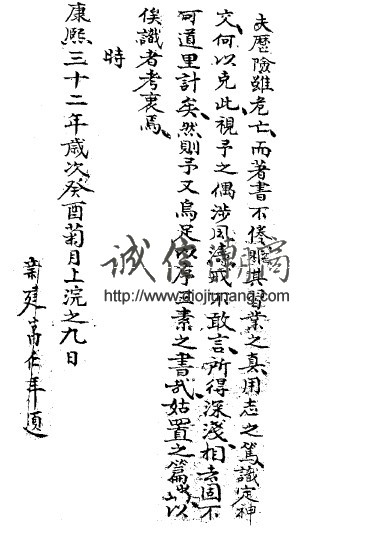 夫歷險雖危亡而著書不倦非其習業之真用志之篤識定神
交何以克此視予之偶涉風濤戒不敢言所得深淺相去固不
可道里計矣然則予又烏足以序五素之書哉姑置之篇以
俟識者考衷焉
時
康熙三十二年歲次癸酉菊月上浣之九日
新建高
誠信潮陽
http://www.qiojunang.com